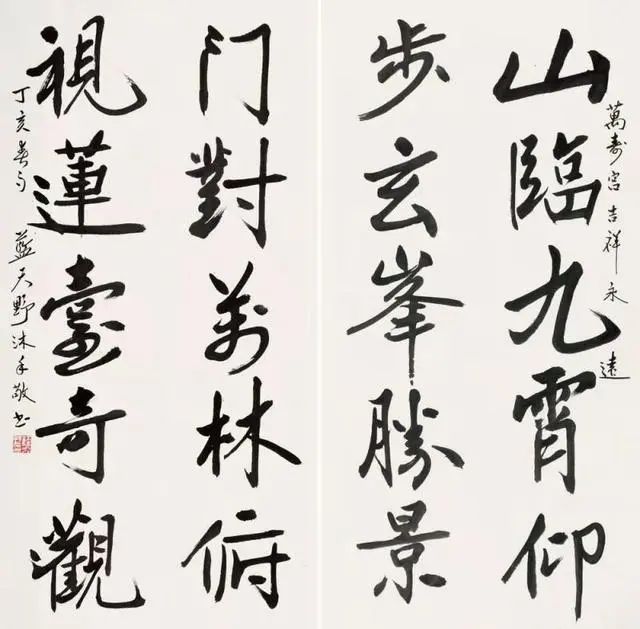 萬寿宮 吉祥永遠
山臨九霄仰
步玄峯勝景
门對萬林俯
視蓮臺奇觀
丁亥春月 藍天野沐手敬书